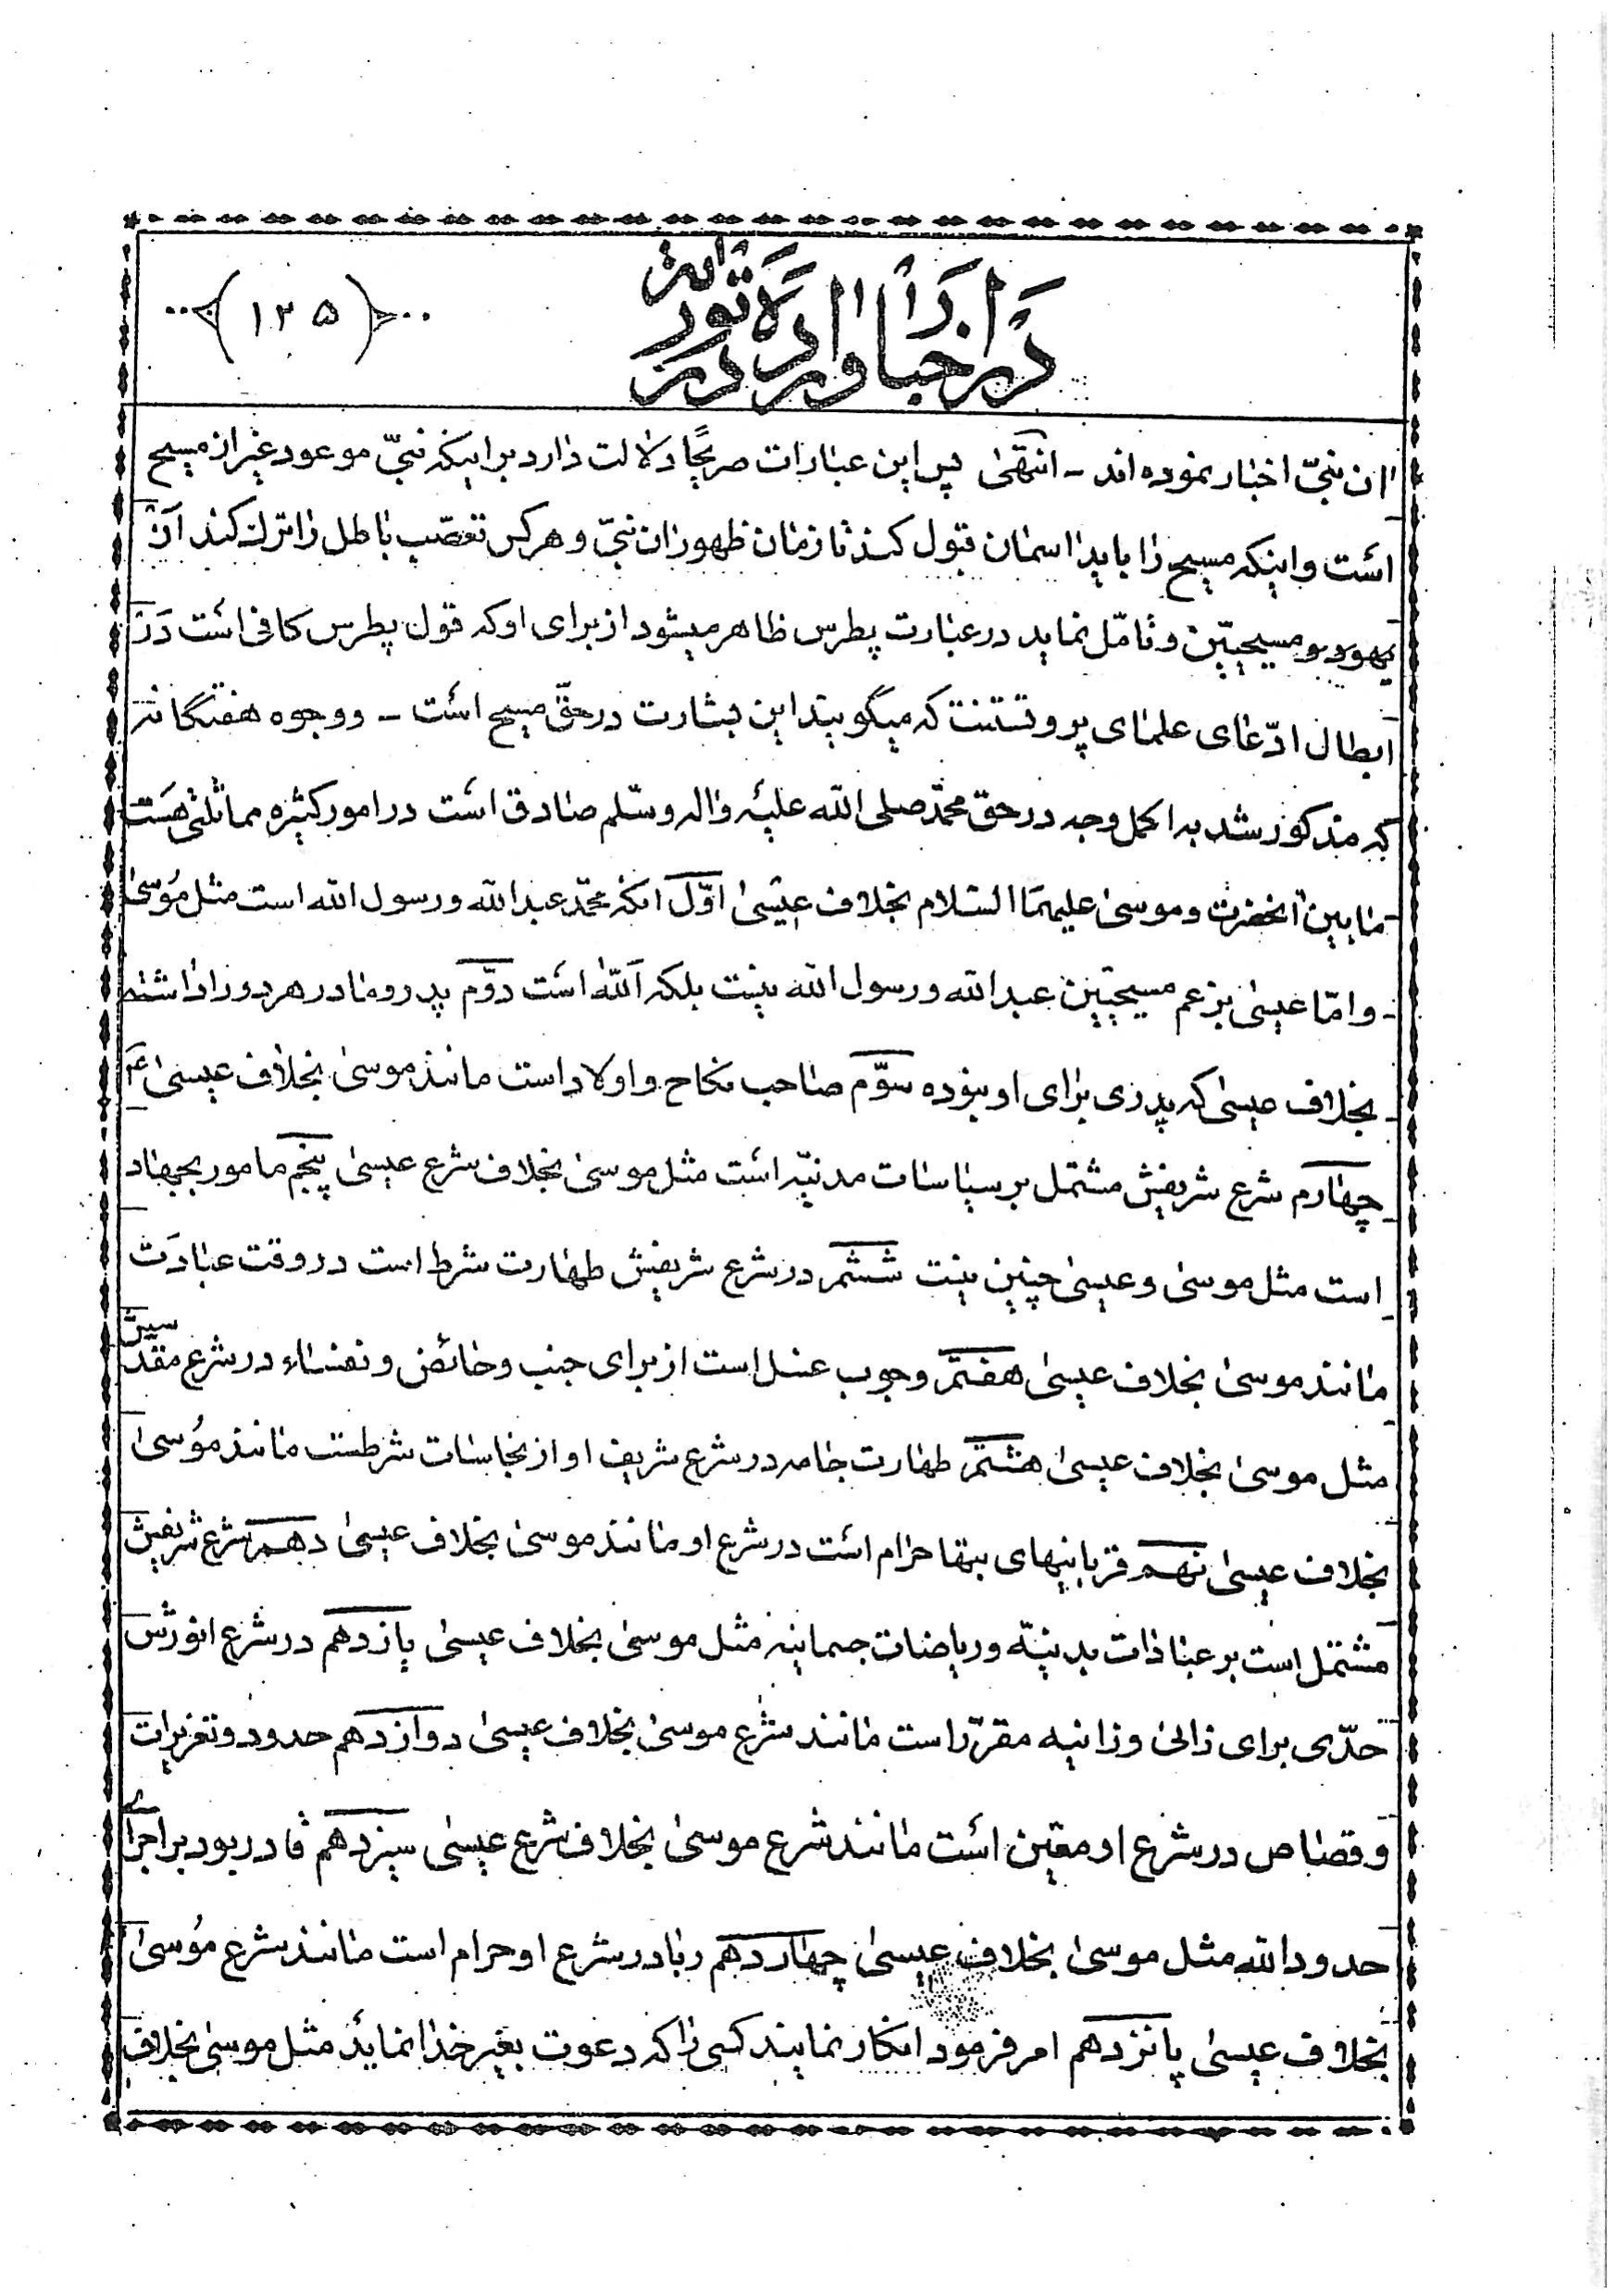 در اخبار وارده در توراة
(۱۲۵)
ان نبیّ اخبار نموده اند - انتهٰی پس این عبارات صریحًا دلالت دارد بر اینکه نبیّ موعود غیر از مسیح
است و اینکه مسیح را باید اسمان قبول کند تا زمان ظهور ان نبیّ و هر کس تعصّب باطل را ترک کند از
یهود و مسیحیّین و تامّل نماید در عبارت پطرس ظاهر میشود از برای او که قول پطرس کافی است در
ابطال ادّعای علمای پروتستنت که میگویند این بشارت در حقّ مسیح است - و وجوه هفتگانه
که مذکور شد به اکمل وجه در حق محمّد صلی الله علیه واله وسلم صادق است در امور کثیره مماثلتی هست
مابین انحضرت و موسی علیهما السلام بخلاف عیسی اوّل انکه محمّد عبدالله و رسول الله است مثل موسی
و امّا عیسی بزعم مسیحیّین عبدالله و رسول الله نیست بلکه اللّه است دوّم پدر و مادر هر دو را داشته
بخلاف عیسی که پدری برای او نبوده سوّم صاحب نکاح و اولاد است مانند موسی بخلاف عیسی ع
چهارم شرع شریفش مشتمل بر سیاسات مدنیّه است مثل موسی بخلاف شرع عیسی پنجم مامور بجهاد
است مثل موسی و عیسی چنین نیست ششم در شرع شریفش طهارت شرط است در وقت عبادت
مانند موسی بخلاف عیسی هفتم وجوب غسل است از برای جنب و حائض و نفساء در شرع مقدّسش
مثل موسی بخلاف عیسی هشتم طهارت جامه در شرع شریف او از نجاسات شرطست مانند موسی
بخلاف عیسی نهم قربانیهای بتها حرام است در شرع او مانند موسی بخلاف عیسی دهم شرع شریفش
مشتمل است بر عبادات بدنیّه و ریاضات جسمانیه مثل موسی بخلاف عیسی یازدهم در شرع انورش
حدّی برای زانی و زانیه مقرّر است مانند شرع موسی بخلاف عیسی دوازدهم حدود و تعزیرات
و قصاص در شرع او معیّن است مانند شرع موسی بخلاف شرع عیسی سیزدهم قادر بود بر اجرای
حدود الله مثل موسی بخلاف عیسی چهاردهم ربا در شرع او حرام است مانند شرع موسی
بخلاف عیسی پانزدهم امر فرمود انکار نمایند کسی را که دعوت بغیر خدا نماید مثل موسی بخلاف